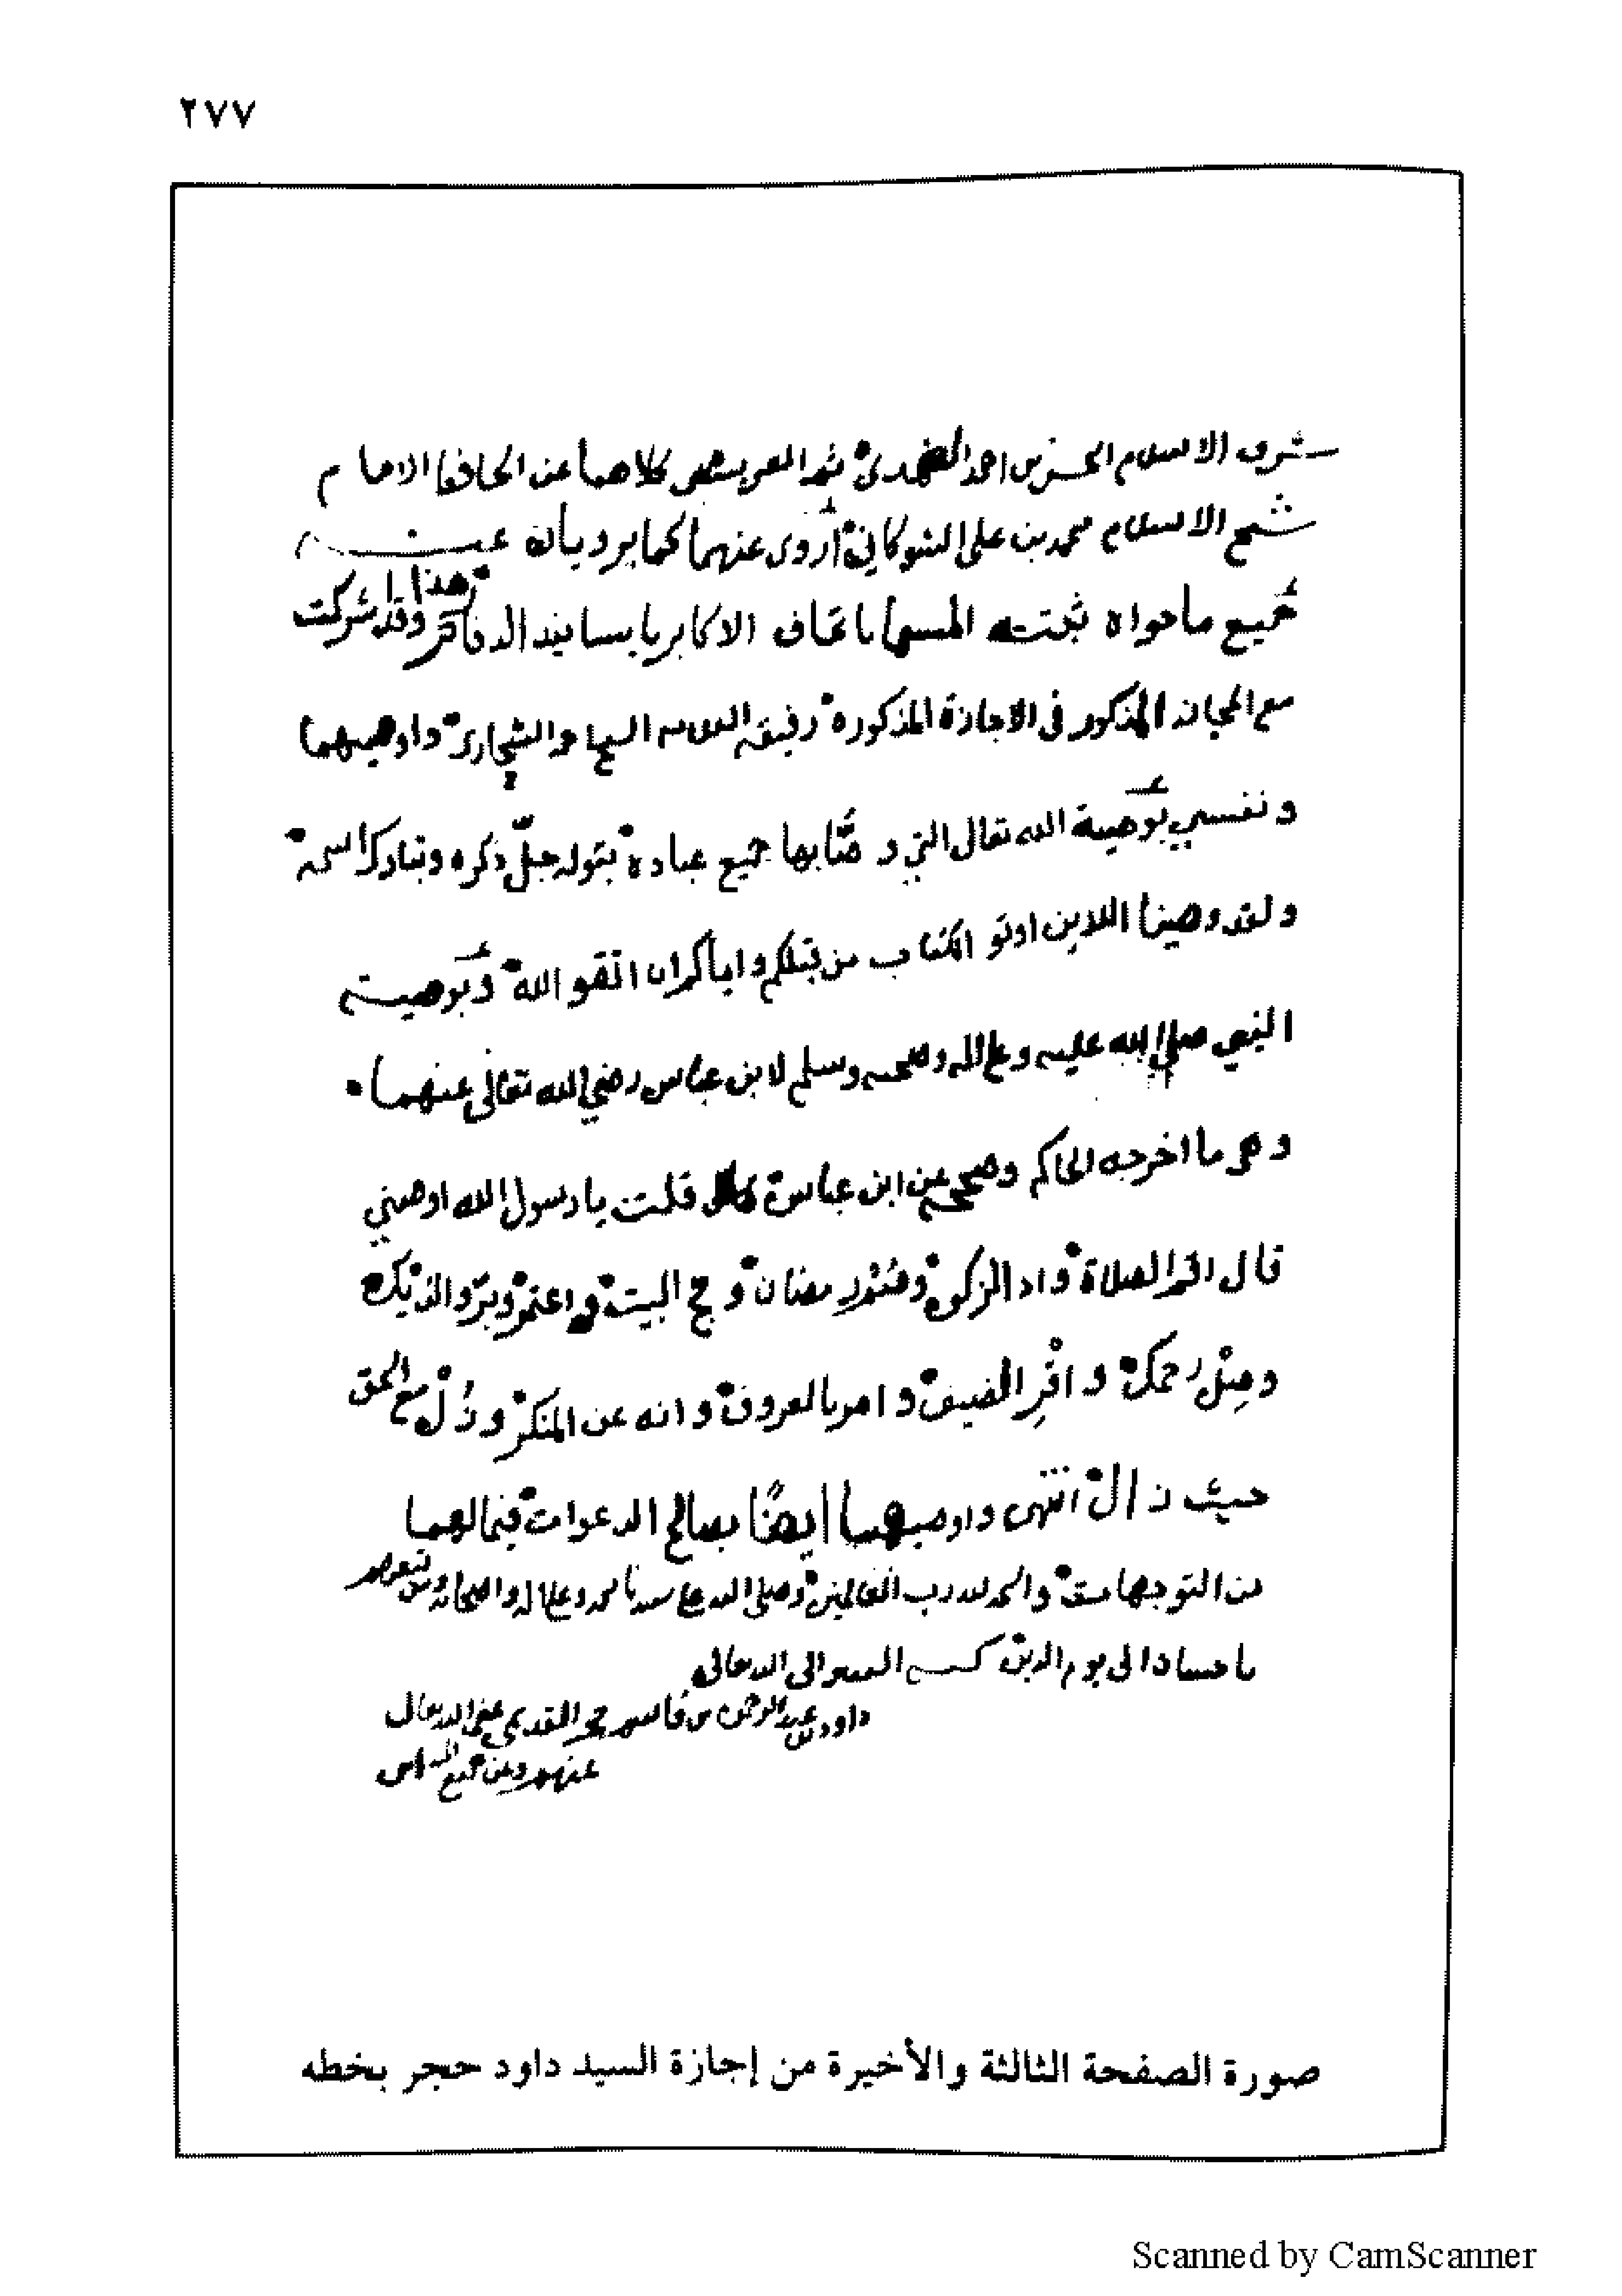 ٢٧٧
شرف الاسلام الحسن بن احمد الضمدي كلاهما عن الحافظ الامام
شيخ الاسلام محمد بن علي الشوكاني أروي عنهما كما يرويانه عنه
جميع ما حواه ثبته المسمى باتحاف الاكابر باسانيد الدفاتر هذا وقد شركت
مع المجاز المذكور في الاجازة المذكورة رفيقه واوصيهما
ونفسي بوصية الله تعالى التي وصّا بها جميع عباده بقوله جلّ ذكره وتبارك اسمه
ولقد وصينا اللذين اوتو الكتاب من قبلكم واياكم ان اتقو الله وبوصية
النبي صلى الله عليه وعلى آله وصحبه وسلم لابن عباس رضي الله تعالى عنهما
وهو ما اخرجه الحاكم وصححه عن ابن عباس قال قلت يا رسول الله اوصني
قال اقم الصلاة واد الزكوة وصُمْ رمضان وحج البيت واعتمر وبرّ والديك
وصِلْ رحمك واقْرِ الضيف وامر بالمعروف وانه عن المنكر وزُلْ مع الحق
حيث زال انتهى واوصيهما ايضًا بصالح الدعوات فيما لهما
من التوجهات والحمد لله رب العالمين وصلى الله على سيدنا محمد وعلى اله واصحابه ومن تبعهم
باحسان الى يوم الدين كتبه الفقير الى الله تعالى
داود بن عبد الرحمن بن قاسم حجر القديمي عفى الله تعالى
عنهم وعن جميع المسلمين
صورة الصفحة الثالثة والأخيرة من إجازة السيد داود حجر بخطه
Scanned by CamScanner